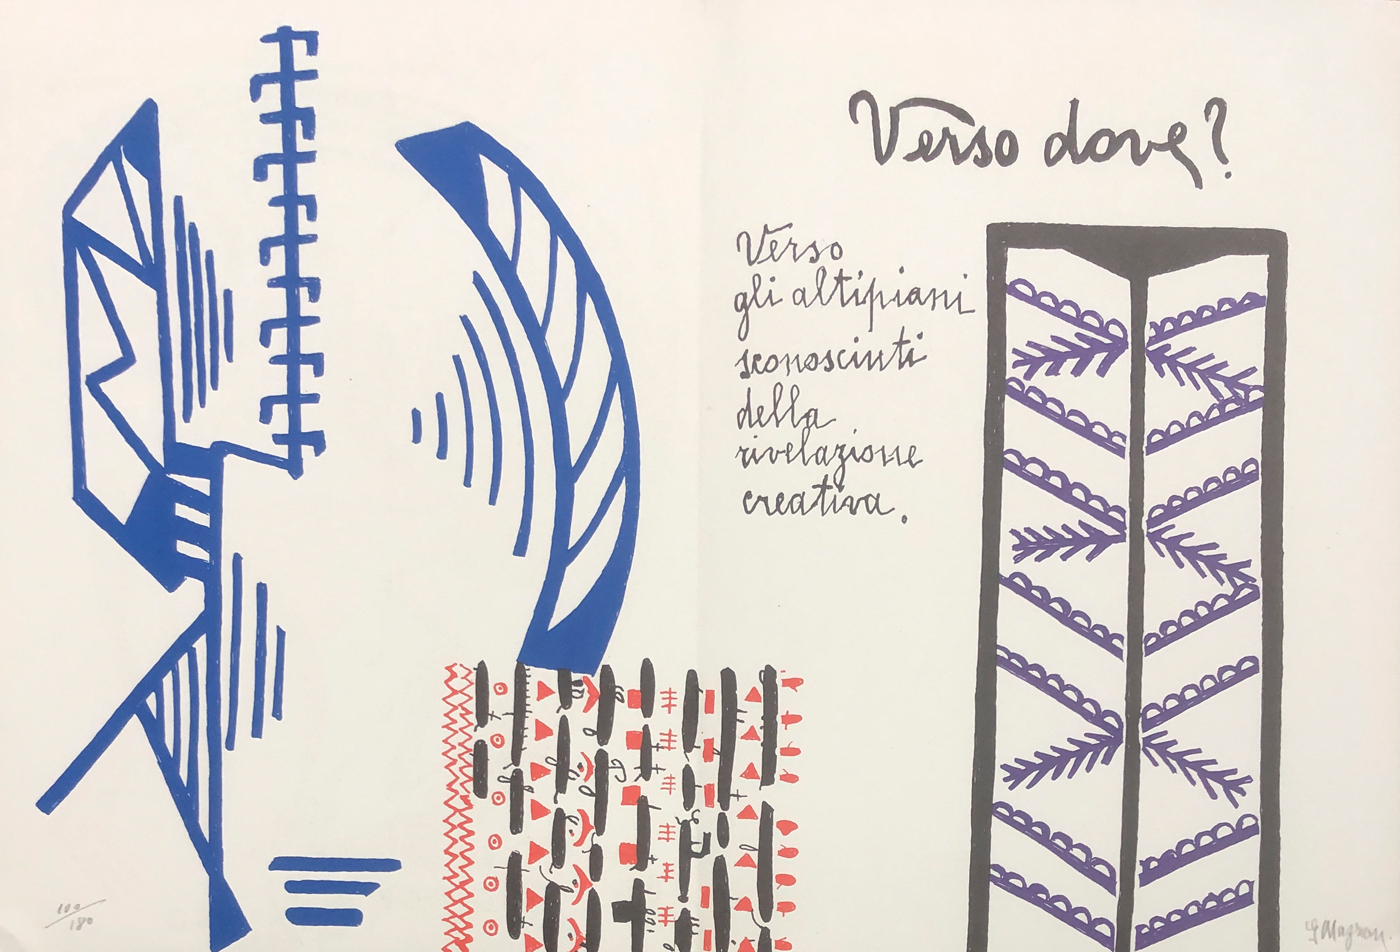 Verso dove?
Verso
gli altipiani
sconosciuti
della
rivelazione
creativa.
100/180